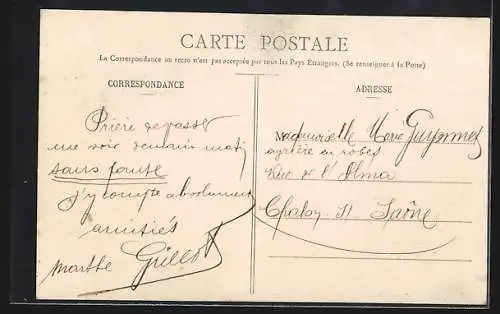 CARTE POSTALE
La Correspondance au recto n'est pas acceptée par tous les Pays Étrangers. (Se renseigner à la Poste)
CORRESPONDANCE
Prière de passer
me voir demain mati
sans faute
j'y compte absolument
amitiés
Marthe Grillot
ADRESSE
Mademoiselle Marie
en robes
Rue de l'Alma
St Saône